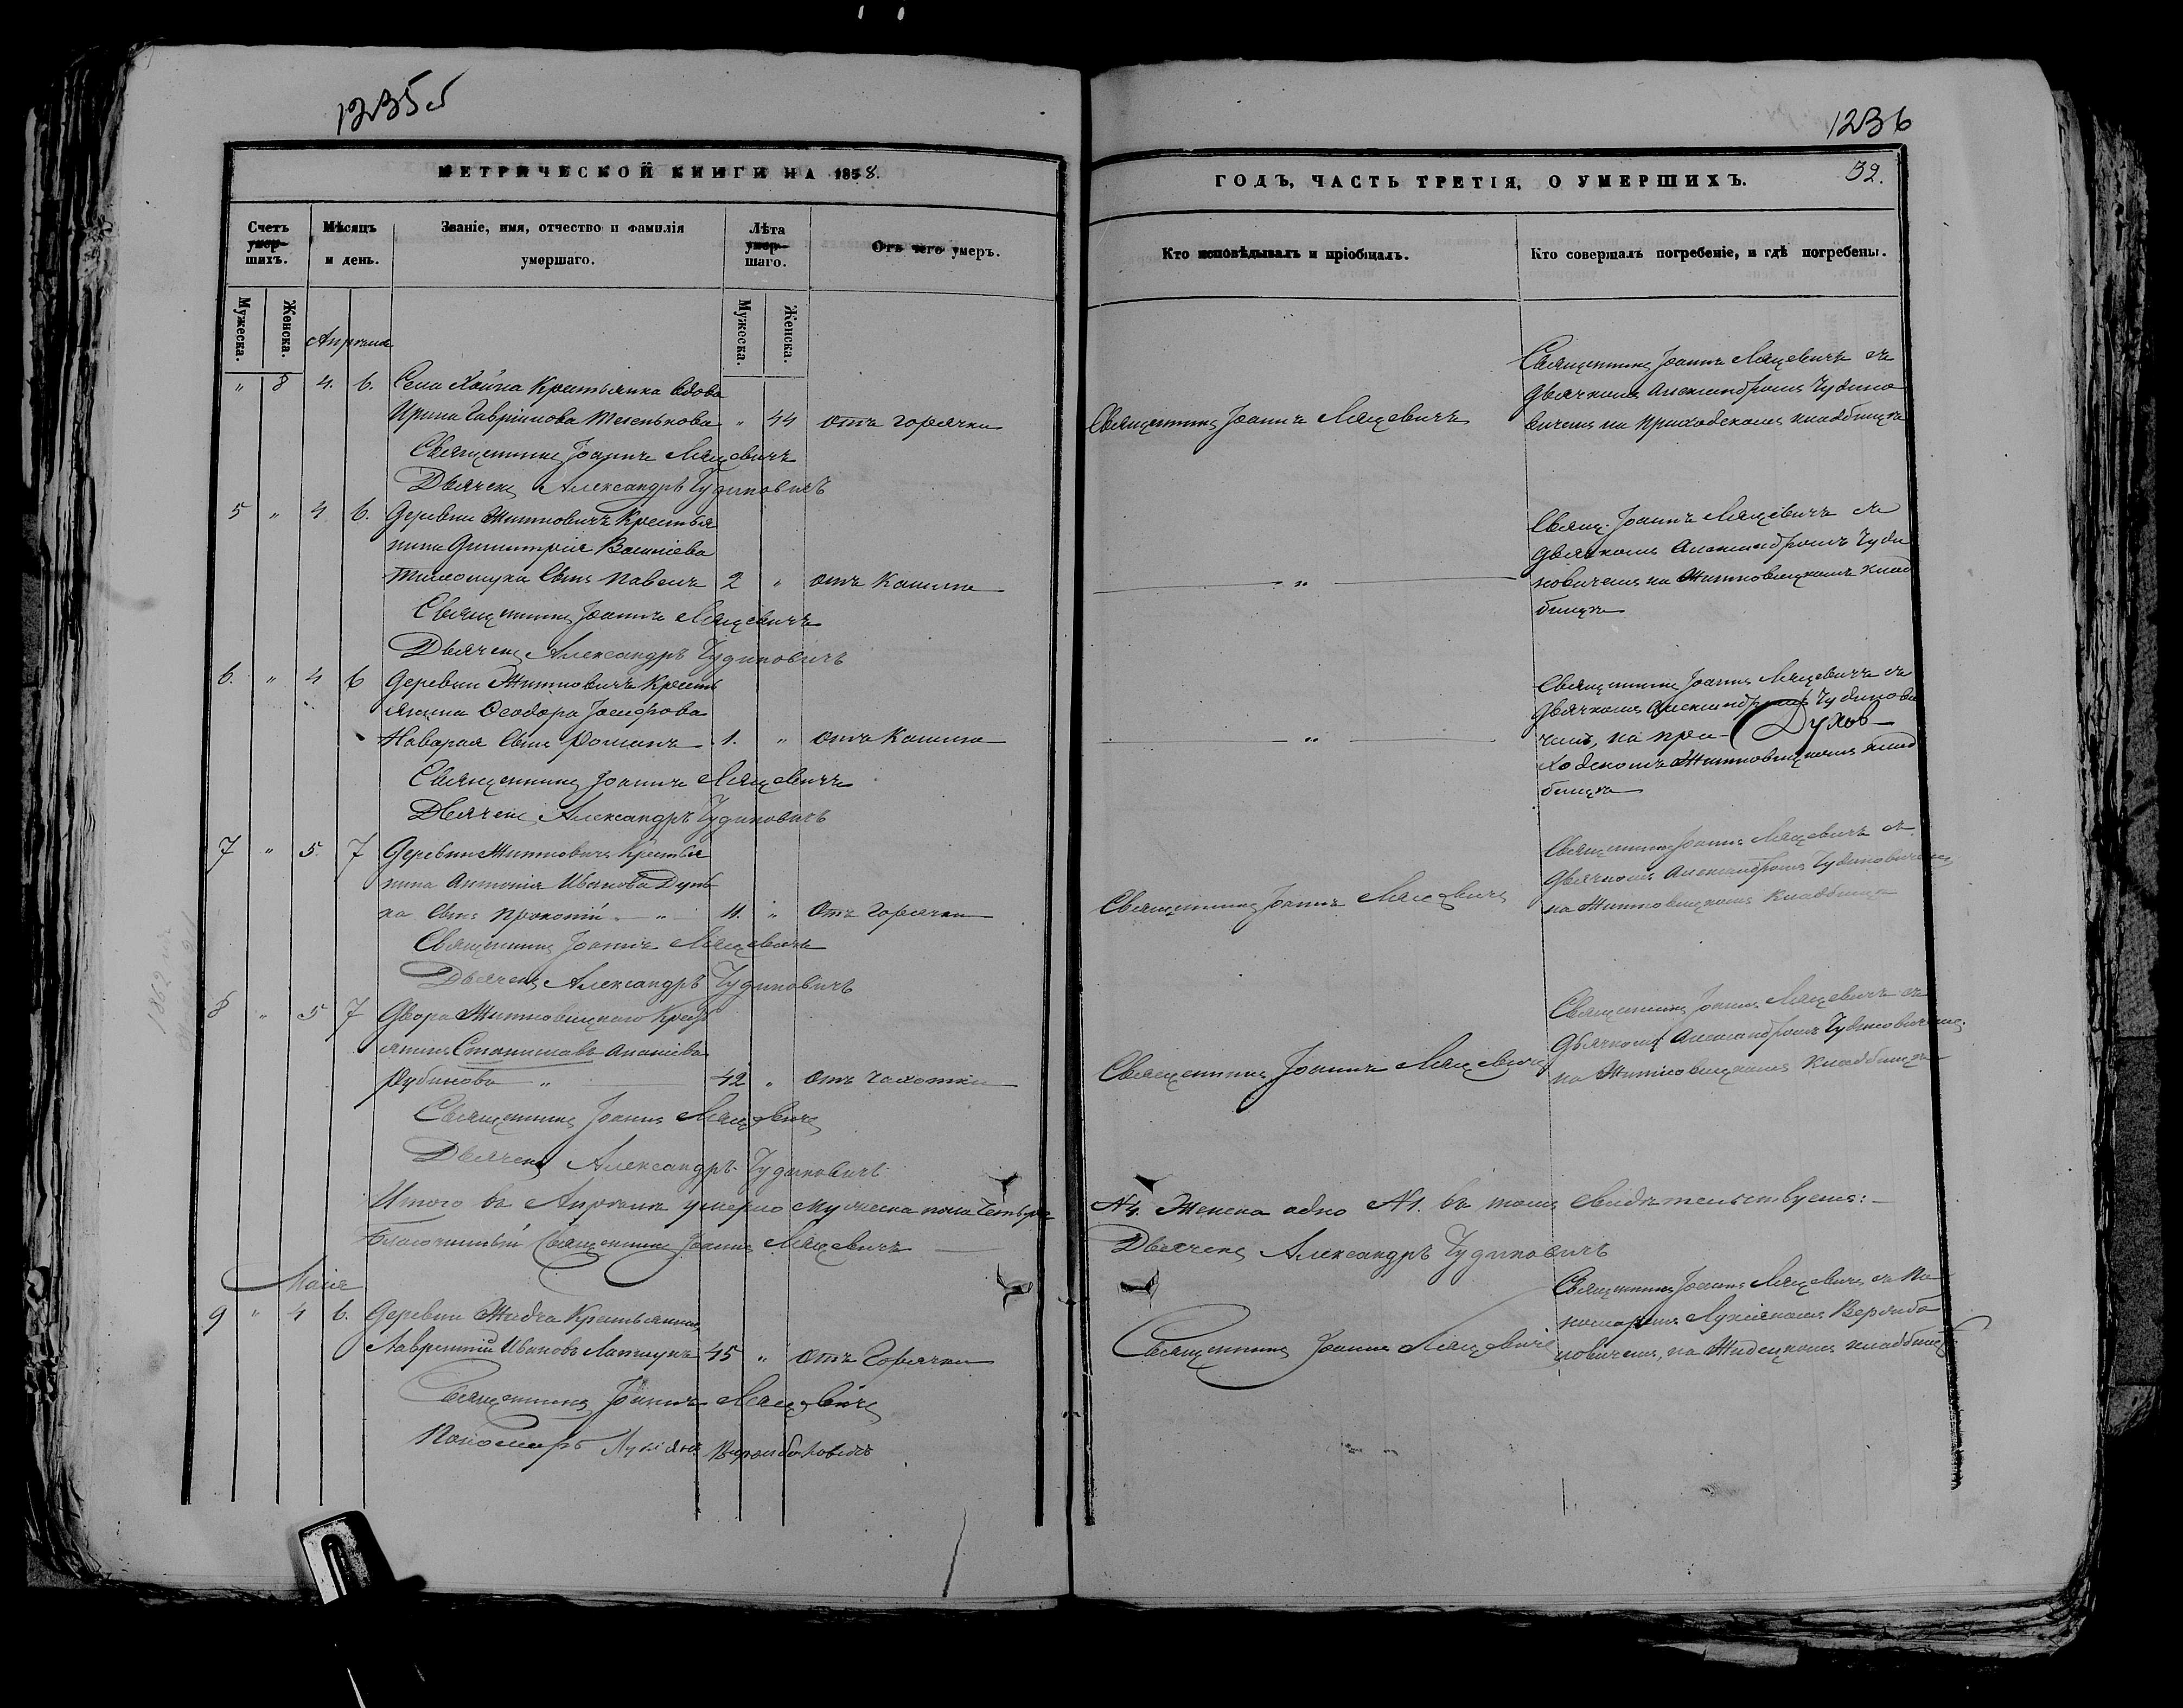 1235 об
МЕТРИЧЕСКОЙ КНИГИ НА 1858.
Счетъ умер-шихъ.
Мѣсяцъ и день.
Званіе, имя, отчество и фамилія умершаго.
Лѣта умер-шаго.
Отъ чего умеръ.
Мужеска.
Женска.
Мужеска.
Женска.
Апрѣля
" 8 4. 6. Села Хойна Крестьянка вдова
Ирина Гавріилова " 44 отъ горячки
Священникъ Іоаннъ Мацевичъ
Дьячекъ Александръ Чудиновичъ
5 " 4 6. Деревни Житновичъ Крестья
нина Димитрія
сынъ Павелъ 2 " отъ Кашля
Священникъ Іоаннъ Мацевичъ
Дьячекъ Александръ Чудиновичъ
6. " 4 6 Деревни Житновичъ Кресть
янина Ѳеодора
сынъ Романъ 1. " отъ Кашля
Священникъ Іоаннъ Мацевичъ
Дьячекъ Александръ Чудиновичъ
7 " 5. 7 Деревни Житновичъ Крестья
нина Антонія Иванова
сынъ Прокопій " 11. " отъ Горячки
Священникъ Іоаннъ Мацевичъ
Дьячекъ Александръ Чудиновичъ
8 " 5 7 Двора Житновицкаго Крест
янинъ Станиславъ
" 42 " отъ чахотки
Священникъ Іоаннъ Мацевичъ
Дьячекъ Александръ Чудиновичъ
Итого въ Апрѣлѣ умерло мужеска пола Четыре
Благочинный Священникъ Іоаннъ Мацевичъ
Маія
9 " 4 6. Деревни Жидча Крестьянинъ
Лаврентій Ивановъ 45 " отъ Горячки
Священникъ Іоаннъ Мацевичъ
Пономарь Лукіанъ
1236
ГОДЪ, ЧАСТЬ ТРЕТІЯ, О УМЕРШИХЪ. 32.
Кто исповѣдывалъ и пріобщалъ.
Кто совершалъ погребеніе, и гдѣ погребены.
Священникъ Іоаннъ Мацевичъ
Священникъ Іоаннъ Мацевичъ съ
дьячкомъ Александромъ Чудино
вичемъ на приходскомъ кладбищѣ
"
Свящ. Іоаннъ Мацевичъ съ
дьячкомъ Александромъ Чуди
новичемъ на Житновицкомъ клад
бищѣ
"
Священникъ Іоаннъ Мацевичъ съ
дьячкомъ Александромъ Чудинови
чемъ, на при-
ходскомъ Житновицкомъ клад
бищѣ
Священникъ Іоаннъ Мацевичъ
Священникъ Іоаннъ Мацевичъ съ
дьячкомъ Александромъ Чудиновичемъ
на Житновицкомъ Кладбищѣ
Священникъ Іоаннъ Мацевичъ
Священникъ Іоаннъ Мацевичъ съ
дьячкомъ Александромъ Чудиновичемъ
на Житновицкомъ Кладбищѣ
№4. Женска одно №1. въ томъ свидѣтельствуемъ:
Дьячекъ Александръ Чудиновичъ
Священникъ Іоаннъ Мацевичъ
Священникъ Іоаннъ Мацевичъ съ По
номаремъ Лукіаномъ
новичемъ, на Жидецкомъ кладбищѣ